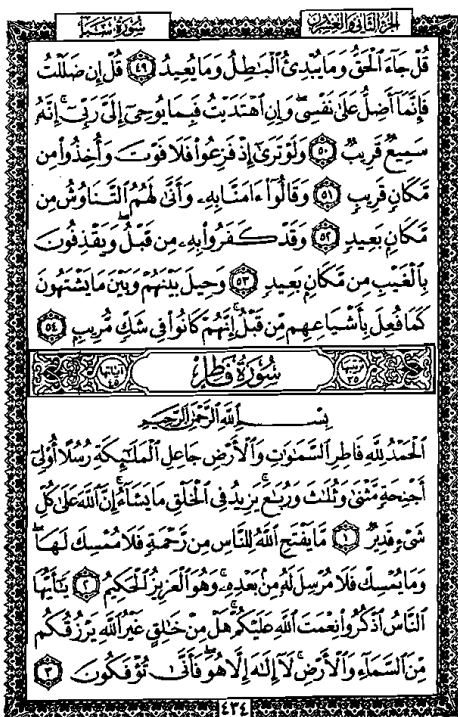 الجزء الثاني والعشرون
سورة سبأ
قُلْ جَآءَ ٱلْحَقُّ وَمَا يُبْدِئُ ٱلْبَـٰطِلُ وَمَا يُعِيدُ ٤٩ قُلْ إِن ضَلَلْتُ
فَإِنَّمَآ أَضِلُّ عَلَىٰ نَفْسِى ۖ وَإِنِ ٱهْتَدَيْتُ فَبِمَا يُوحِىٓ إِلَىَّ رَبِّىٓ ۚ إِنَّهُۥ
سَمِيعٌ قَرِيبٌ ٥٠ وَلَوْ تَرَىٰٓ إِذْ فَزِعُوا۟ فَلَا فَوْتَ وَأُخِذُوا۟ مِن
مَّكَانٍ قَرِيبٍ ٥١ وَقَالُوٓا۟ ءَامَنَّا بِهِۦ وَأَنَّىٰ لَهُمُ ٱلتَّنَاوُشُ مِن
مَّكَانٍۭ بَعِيدٍ ٥٢ وَقَدْ كَفَرُوا۟ بِهِۦ مِن قَبْلُ ۖ وَيَقْذِفُونَ
بِٱلْغَيْبِ مِن مَّكَانٍۭ بَعِيدٍ ٥٣ وَحِيلَ بَيْنَهُمْ وَبَيْنَ مَا يَشْتَهُونَ
كَمَا فُعِلَ بِأَشْيَاعِهِم مِّن قَبْلُ ۚ إِنَّهُمْ كَانُوا۟ فِى شَكٍّ مُّرِيبٍۭ ٥٤
ترتيبها ٣٥ سورة فاطر آياتها ٤٥
بِسْمِ ٱللَّهِ ٱلرَّحْمَـٰنِ ٱلرَّحِيمِ
ٱلْحَمْدُ لِلَّهِ فَاطِرِ ٱلسَّمَـٰوَٰتِ وَٱلْأَرْضِ جَاعِلِ ٱلْمَلَـٰٓئِكَةِ رُسُلًا أُو۟لِىٓ
أَجْنِحَةٍ مَّثْنَىٰ وَثُلَـٰثَ وَرُبَـٰعَ ۚ يَزِيدُ فِى ٱلْخَلْقِ مَا يَشَآءُ ۚ إِنَّ ٱللَّهَ عَلَىٰ كُلِّ
شَىْءٍ قَدِيرٌ ١ مَّا يَفْتَحِ ٱللَّهُ لِلنَّاسِ مِن رَّحْمَةٍ فَلَا مُمْسِكَ لَهَا ۖ
وَمَا يُمْسِكْ فَلَا مُرْسِلَ لَهُۥ مِنۢ بَعْدِهِۦ ۚ وَهُوَ ٱلْعَزِيزُ ٱلْحَكِيمُ ٢ يَـٰٓأَيُّهَا
ٱلنَّاسُ ٱذْكُرُوا۟ نِعْمَتَ ٱللَّهِ عَلَيْكُمْ ۚ هَلْ مِنْ خَـٰلِقٍ غَيْرُ ٱللَّهِ يَرْزُقُكُم
مِّنَ ٱلسَّمَآءِ وَٱلْأَرْضِ ۚ لَآ إِلَـٰهَ إِلَّا هُوَ ۖ فَأَنَّىٰ تُؤْفَكُونَ ٣
٤٣٤